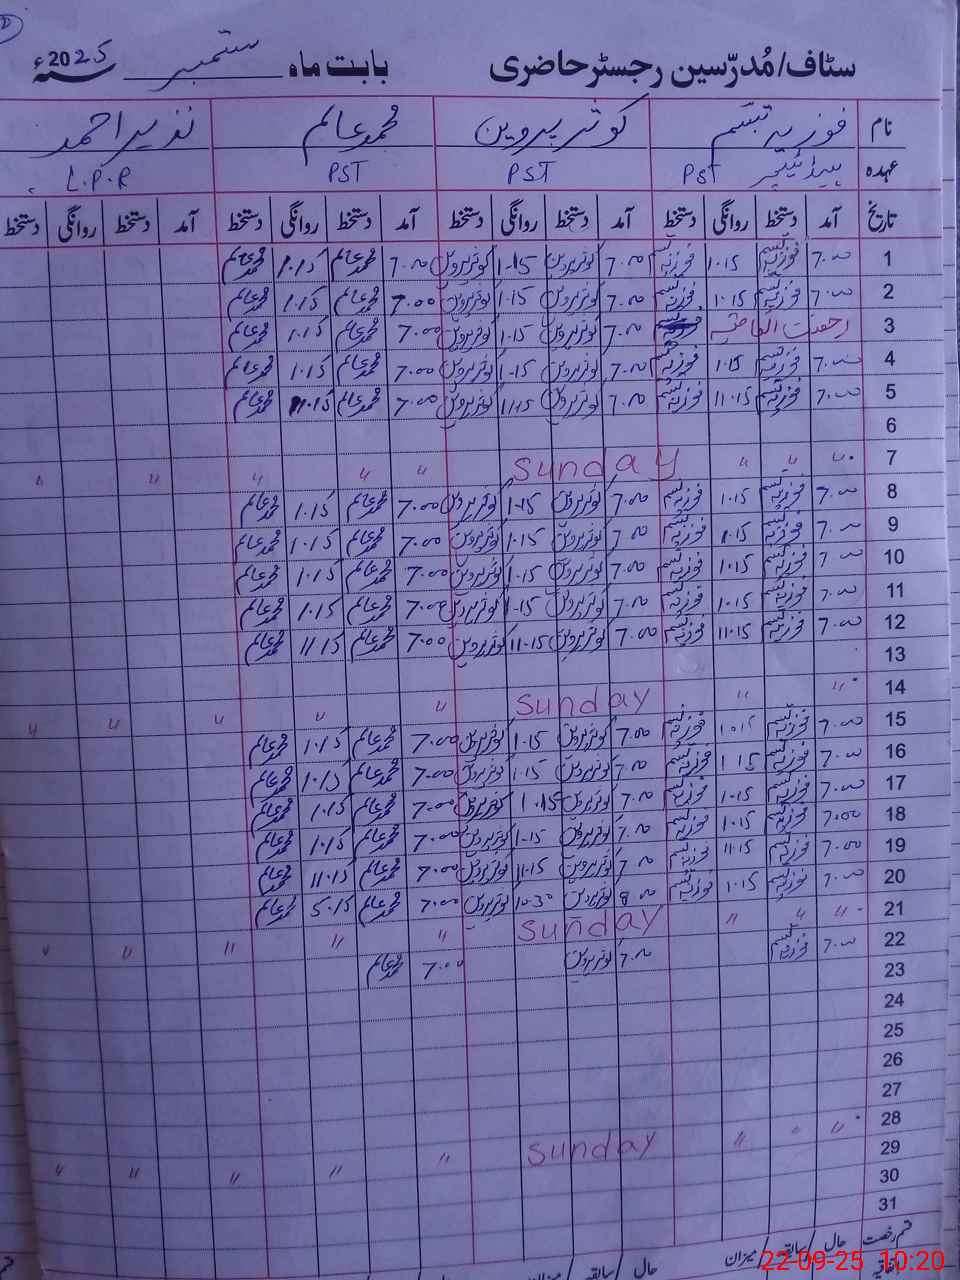 سٹاف/مُدرّسین رجسٹر حاضری بابت ماہ ستمبر سنہ 2025ء
نام فوزیہ تبسّم کوثر پروین محمد عالم نذیر احمد
عہدہ ہیڈ ٹیچر PST PST PST L.P.R
تاریخ آمد دستخط روانگی دستخط آمد دستخط روانگی دستخط آمد دستخط روانگی دستخط آمد دستخط روانگی دستخط
1 7.00 فوزیہ تبسم 1.15 فوزیہ تبسم 7.00 کوثر پروین 1.15 کوثر پروین 7.00 محمد عالم 1.15 محمد عالم
2 7.00 فوزیہ تبسم 1.15 فوزیہ تبسم 7.00 کوثر پروین 1.15 کوثر پروین 7.00 محمد عالم 1.15 محمد عالم
3 رخصت اتفاقیہ 7.00 کوثر پروین 1.15 کوثر پروین 7.00 محمد عالم 1.15 محمد عالم
4 7.00 فوزیہ تبسم 1.15 فوزیہ تبسم 7.00 کوثر پروین 1.15 کوثر پروین 7.00 محمد عالم 1.15 محمد عالم
5 7.00 فوزیہ تبسم 11.15 فوزیہ تبسم 7.00 کوثر پروین 11.15 کوثر پروین 7.00 محمد عالم 11.15 محمد عالم
6
7 " " " Sunday " " " " "
8 7.00 فوزیہ تبسم 1.15 فوزیہ تبسم 7.00 کوثر پروین 1.15 کوثر پروین 7.00 محمد عالم 1.15 محمد عالم
9 7.00 فوزیہ تبسم 1.15 فوزیہ تبسم 7.00 کوثر پروین 1.15 کوثر پروین 7.00 محمد عالم 1.15 محمد عالم
10 7.00 فوزیہ تبسم 1.15 فوزیہ تبسم 7.00 کوثر پروین 1.15 کوثر پروین 7.00 محمد عالم 1.15 محمد عالم
11 7.00 فوزیہ تبسم 1.15 فوزیہ تبسم 7.00 کوثر پروین 1.15 کوثر پروین 7.00 محمد عالم 1.15 محمد عالم
12 7.00 فوزیہ تبسم 11.15 فوزیہ تبسم 7.00 کوثر پروین 11.15 کوثر پروین 7.00 محمد عالم 11.15 محمد عالم
13
14 " " Sunday " " " " "
15 7.00 فوزیہ تبسم 1.15 فوزیہ تبسم 7.00 کوثر پروین 1.15 کوثر پروین 7.00 محمد عالم 1.15 محمد عالم
16 7.00 فوزیہ تبسم 1.15 فوزیہ تبسم 7.00 کوثر پروین 1.15 کوثر پروین 7.00 محمد عالم 1.15 محمد عالم
17 7.00 فوزیہ تبسم 1.15 فوزیہ تبسم 7.00 کوثر پروین 1.15 کوثر پروین 7.00 محمد عالم 1.15 محمد عالم
18 7.00 فوزیہ تبسم 1.15 فوزیہ تبسم 7.00 کوثر پروین 1.15 کوثر پروین 7.00 محمد عالم 1.15 محمد عالم
19 7.00 فوزیہ تبسم 11.15 فوزیہ تبسم 7.00 کوثر پروین 11.15 کوثر پروین 7.00 محمد عالم 11.15 محمد عالم
20 7.00 فوزیہ تبسم 1.15 فوزیہ تبسم 8.00 کوثر پروین 10.30 کوثر پروین 7.00 محمد عالم 5.15 محمد عالم
21 " " " Sunday " " " " "
22 7.00 فوزیہ تبسم 7.00 کوثر پروین 7.00 محمد عالم
23
24
25
26
27
28 " " " Sunday " " " " "
29
30
31
قسم رخصت حال سابقہ میزان حال سابقہ میزان
اتفاقیہ
22-09-25 10:20